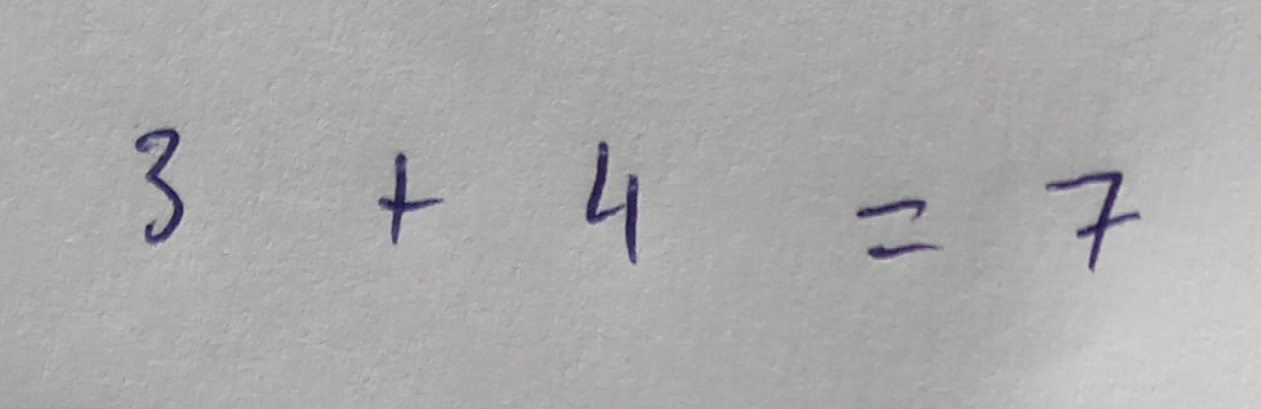 3 + 4 = 7